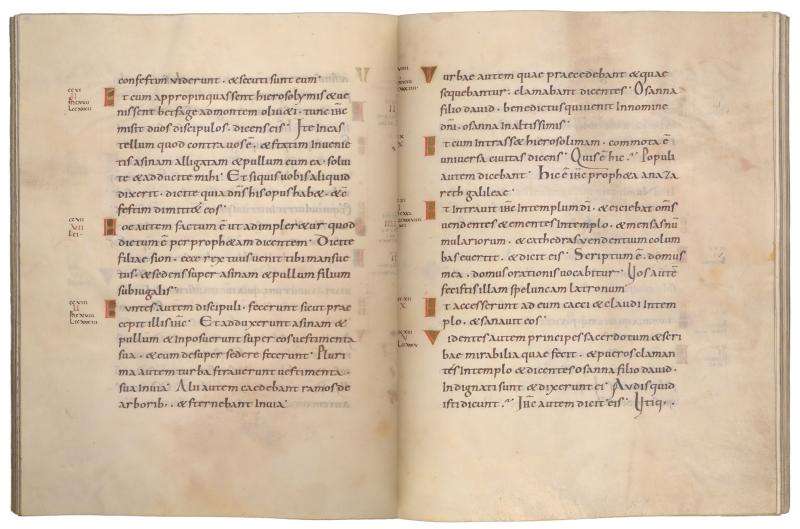 confestim viderunt · & secuti sunt eum·
Et cum appropinquassent hierosolymis & ve
nissent betfage ad montem oliu&i · tunc ihc
misit duos discipulos · dicens eis· Ite in cas
tellum quod contra uos ē · & statim inuenie
tis asinam alligatam & pullum cum ea · solui
te & adducite mihi· Et siquis uobis aliquid
dixerit · dicite quia dn̄s his opus hab& · & c̄
festim dimitt& eos·
Hoc autem factum ē ut adimpler&ur quod
dictum ē per proph&am dicentem· Dicite
filiae sion · ecce rex tuus uenit tibi mansue
tus · & sedens super asinam & pullum filium
subiugalis·
Euntes autem discipuli · fecerunt sicut prae
cepit illis ihc̄· Et adduxerunt asinam &
pullum & inposuerunt super eos uestimenta
sua · & eum desuper sedere fecerunt· Pluri
ma autem turba strauerunt uestimenta
sua in uia· Alii autem caedebant ramos de
arborib; · & sternebant in uia·
Turbae autem quae praecedebant & quae
sequebantur · clamabant dicentes· Osanna
filio dauid · benedictus qui uenit in nomine
dn̄i · osanna in altissimis·
Et cum intrass& hierosolimam · commota ē
uniuersa ciuitas dicens· Quis ē hic· Populi
autem dicebant· Hic ē ihc proph&a a naza
reth galileae·
Et intrauit ihc in templum dī · & eiciebat om̄s
uendentes & ementes in templo · & mensas nū
mulariorum · & cathedras uendentium colum
bas euertit · & dicit eis· Scriptum ē · domus
mea · domus orationis uocabitur· Vos autē
fecistis illam speluncam latronum·
Et accesserunt ad eum caeci & claudi in tem
plo · & sanauit eos·
Videntes autem principes sacerdotum & scri
bae mirabilia quae fecit · & pueros claman
tes in templo & dicentes osanna filio dauid ·
Indignati sunt & dixerunt ei· Audis quid
isti dicunt· Ihc autem dicit eis· Vtiq;·